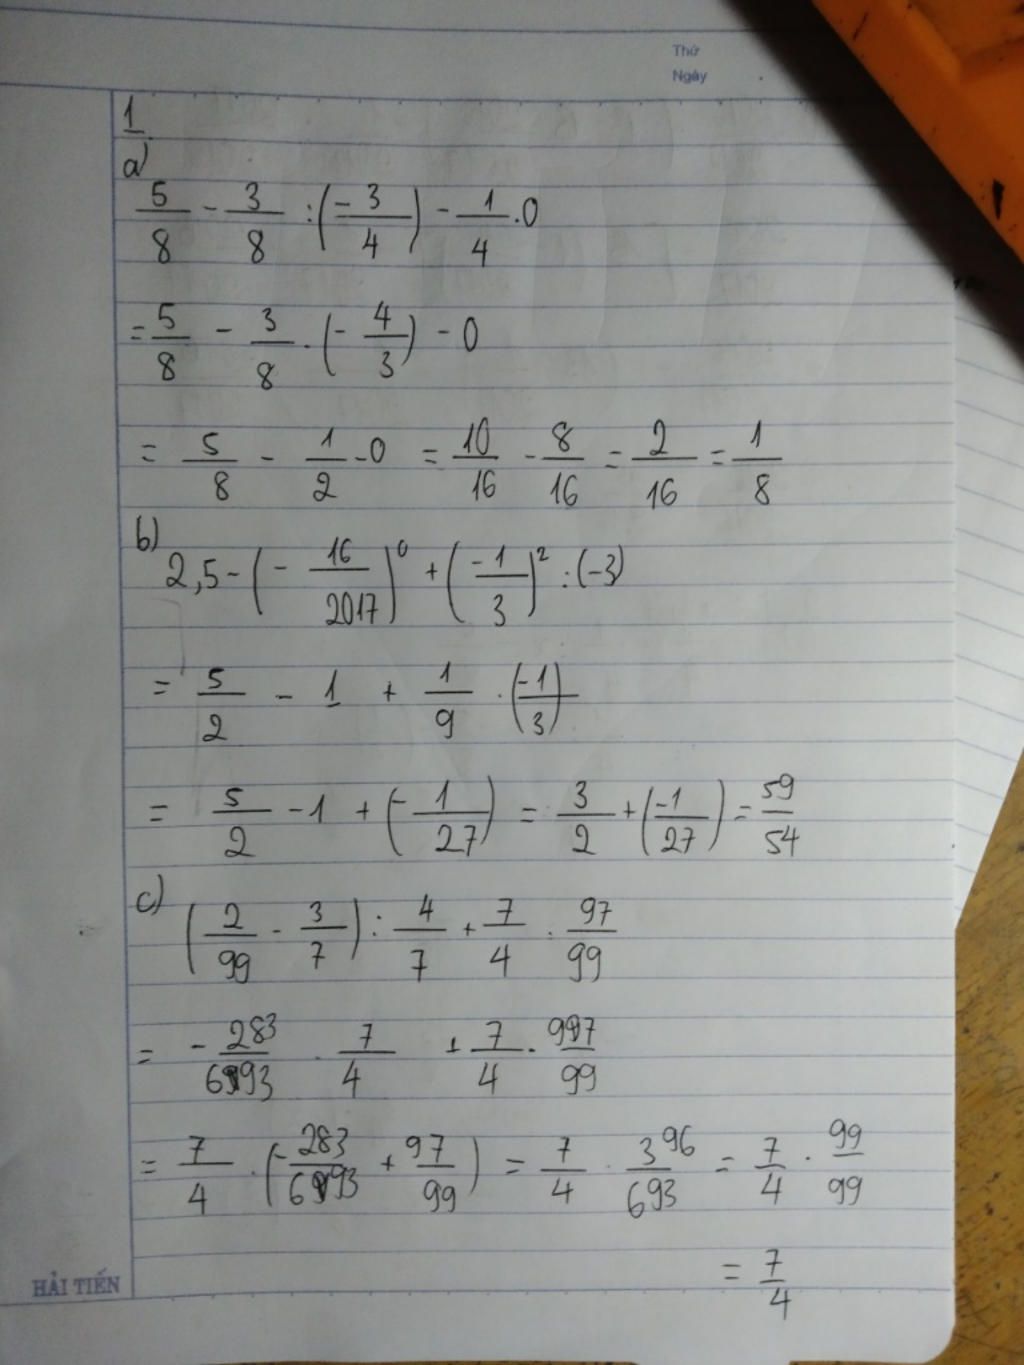 Thứ
Ngày
1
a)
5/8 - 3/8 : (-3/4) - 1/4 . 0
= 5/8 - 3/8 . (-4/3) - 0
= 5/8 - 1/2 - 0 = 10/16 - 8/16 = 2/16 = 1/8
b)
2,5 - (-16/2017)^0 + (-1/3)^2 : (-3)
= 5/2 - 1 + 1/9 . (-1/3)
= 5/2 - 1 + (-1/27) = 3/2 + (-1/27) = 59/54
c)
(2/99 - 3/7) : 4/7 + 7/4 . 97/99
= -283/693 . 7/4 + 7/4 . 97/99
= 7/4 . (-283/693 + 97/99) = 7/4 . 396/693 = 7/4 . 99/99
= 7/4
HẢI TIẾN